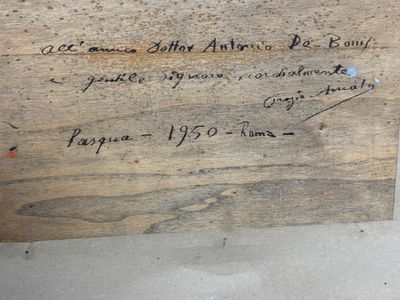 all' amico Dottor Antonio De Bonis
e gentile Signora, cordialmente
Orazio Amato
Pasqua - 1950 - Roma -